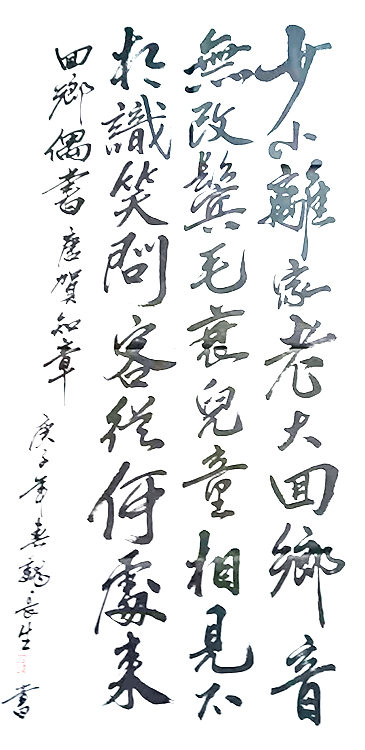 少小離家老大回鄉音
無改鬢毛衰兒童相見不
相識笑問客從何處來
回鄉偶書 唐賀知章
庚子年春長生書